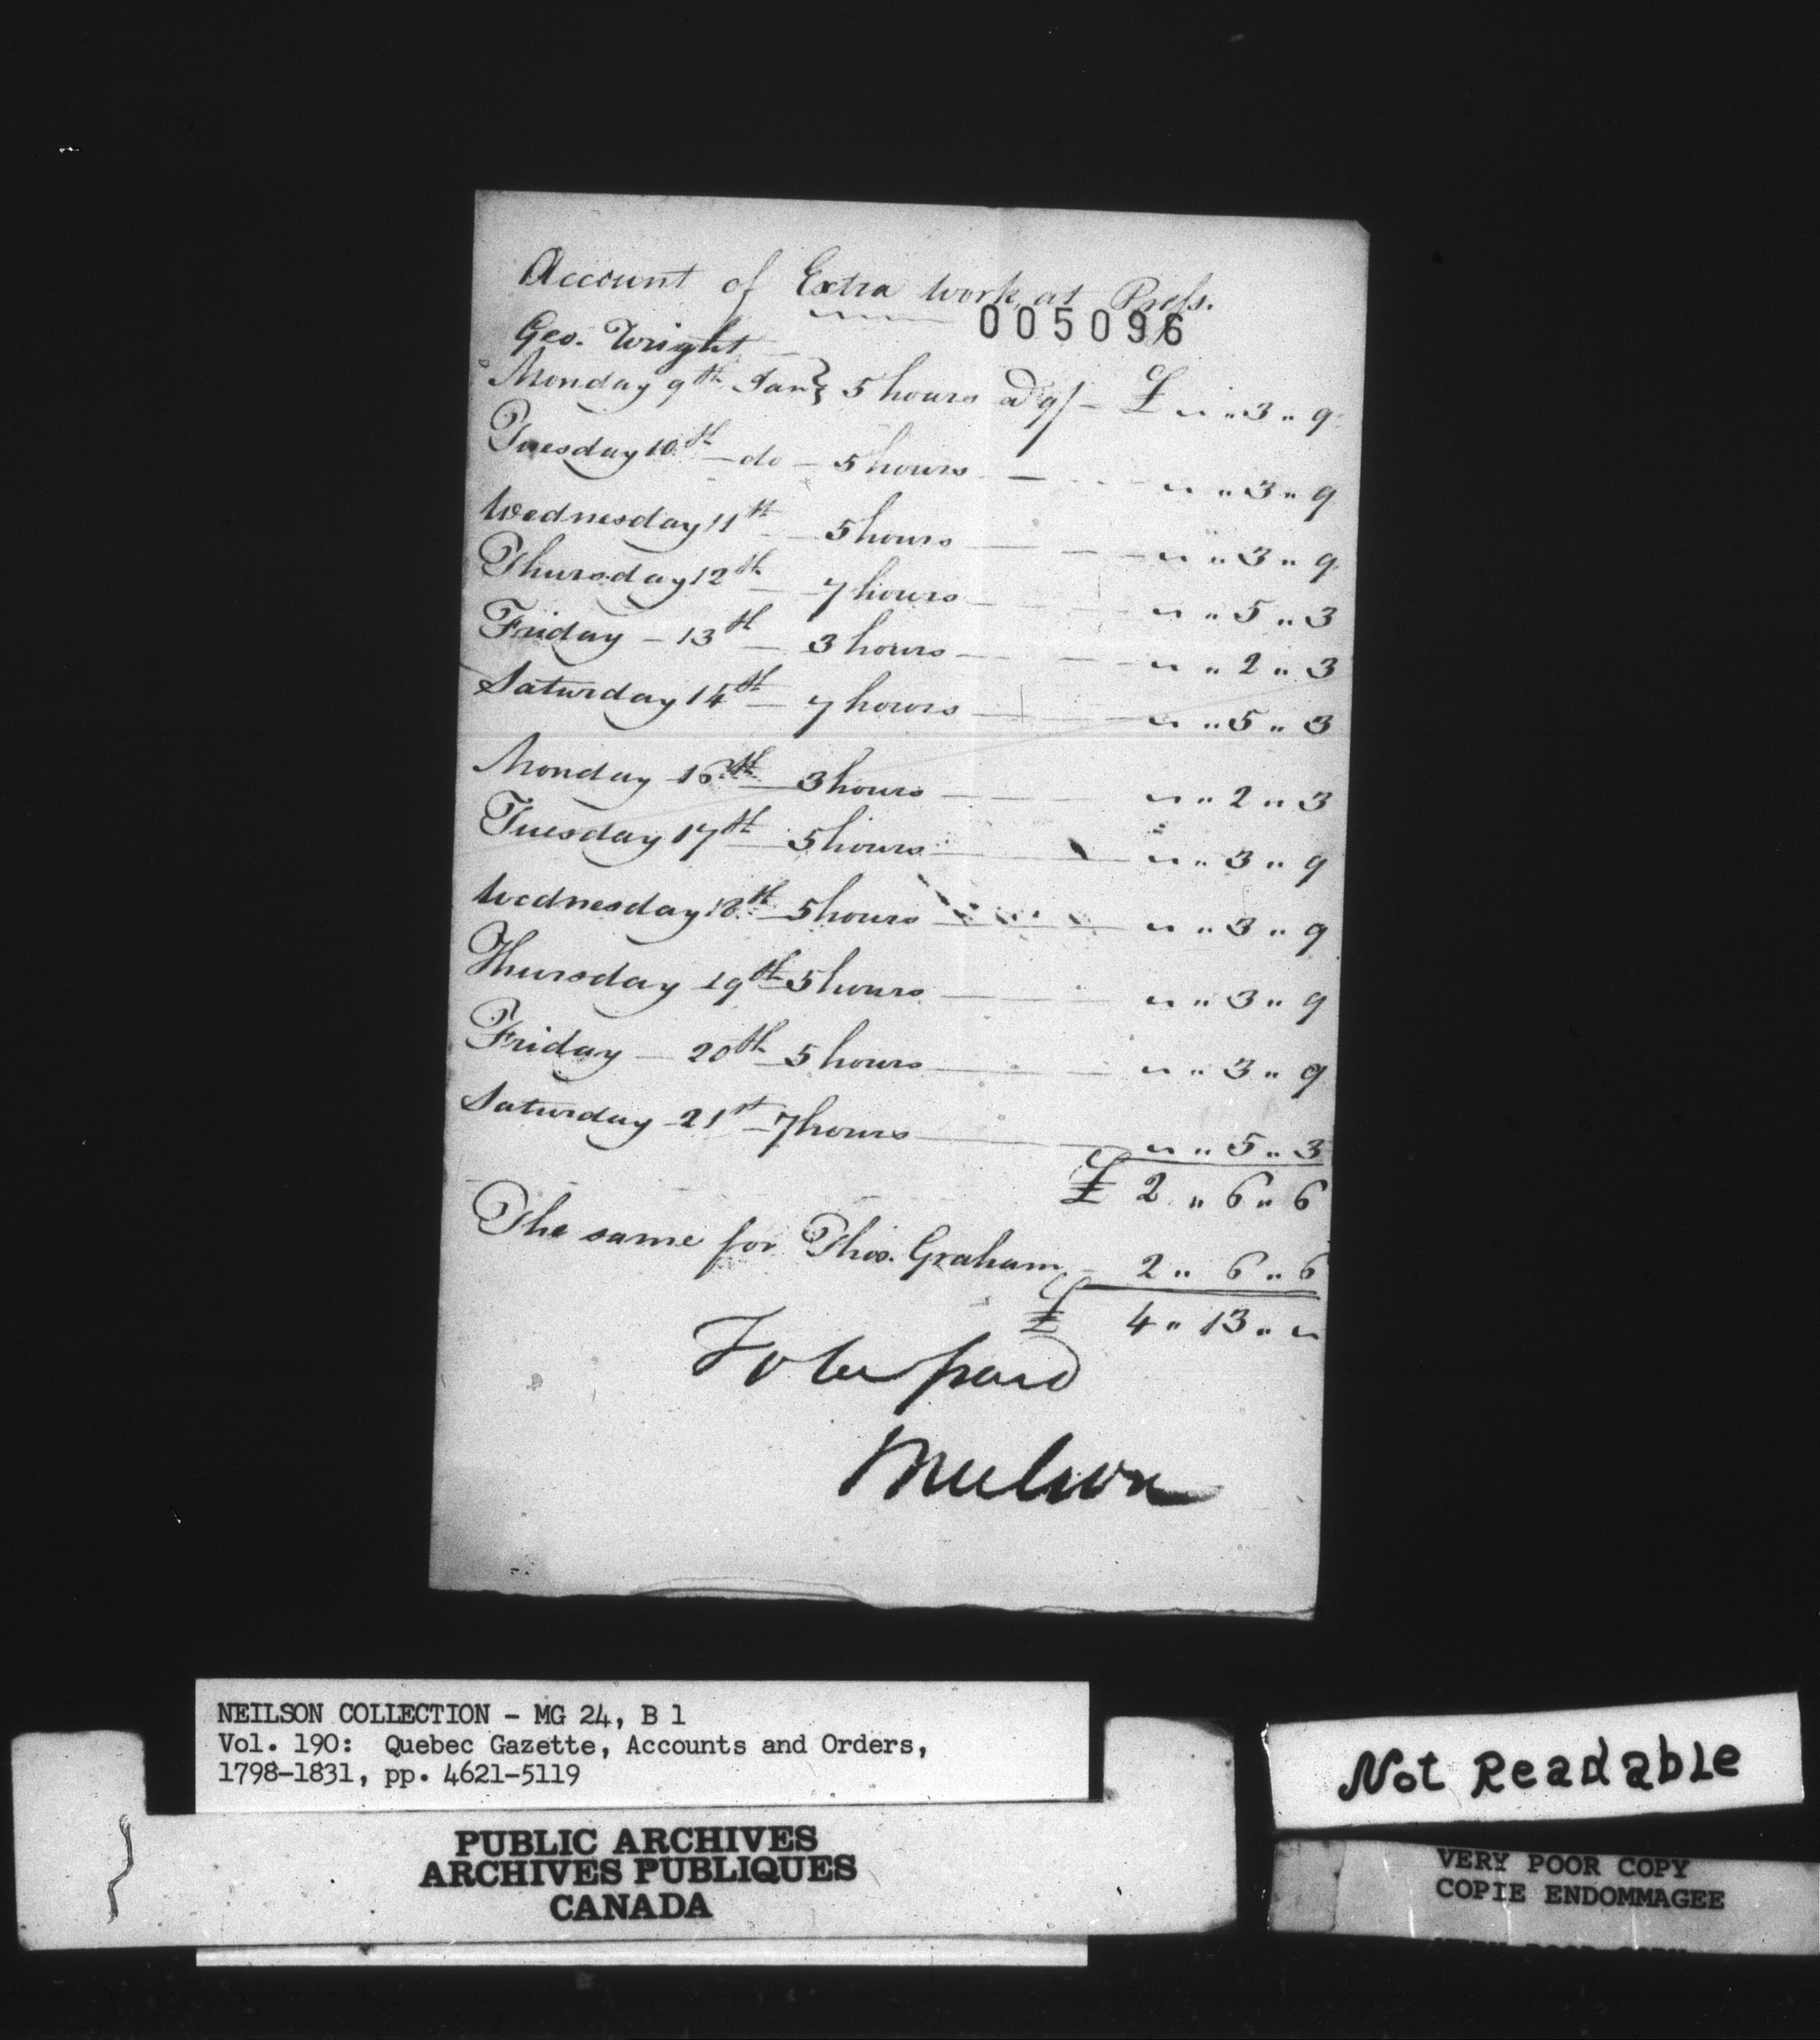 Account of Extra work at Press.
005096
Geo. Wright
Monday 9th Jany 5 hours @ 9/ — £ " 3 " 9
Tuesday 10th — do — 5 hours — " 3 " 9
Wednesday 11th — 5 hours — " 3 " 9
Thursday 12th — 7 hours — " 5 " 3
Friday — 13th — 3 hours — " 2 " 3
Saturday 14th — 7 hours — " 5 " 3
Monday 16th — 3 hours — " 2 " 3
Tuesday 17th — 5 hours — " 3 " 9
Wednesday 18th — 5 hours — " 3 " 9
Thursday 19th 5 hours — " 3 " 9
Friday — 20th 5 hours — " 3 " 9
Saturday 21st — 7 hours — " 5 " 3
£ 2 " 6 " 6
The same for Thos. Graham — 2 " 6 " 6
£ 4 " 13 "
To be paid
Neilson
NEILSON COLLECTION - MG 24, B 1
Vol. 190: Quebec Gazette, Accounts and Orders,
1798-1831, pp. 4621-5119
PUBLIC ARCHIVES
ARCHIVES PUBLIQUES
CANADA
Not Readable
VERY POOR COPY
COPIE ENDOMMAGEE